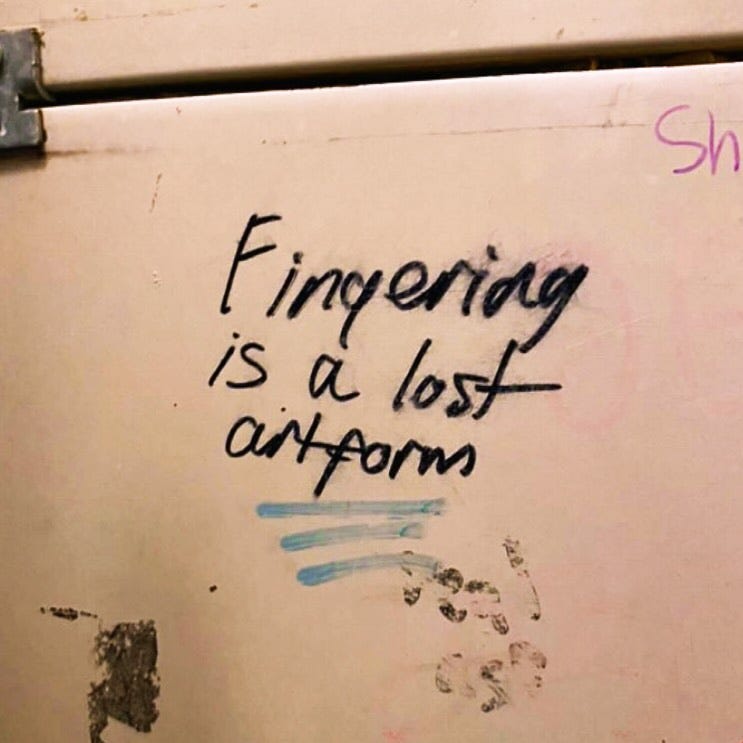 Sh
Fingering
is a lost
artform